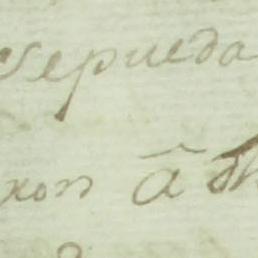 sepueda
xon â